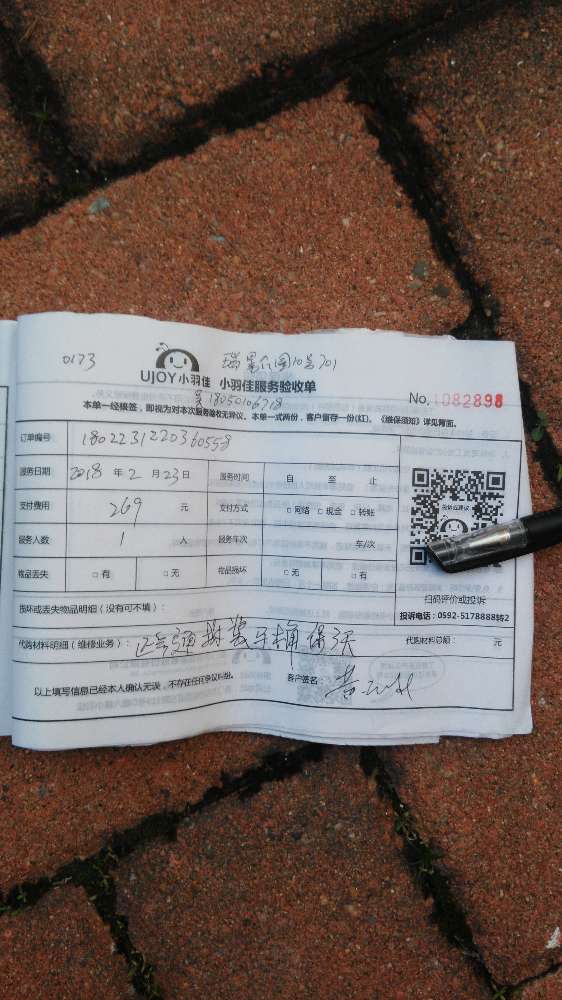 0173
瑞景公园10号701
UJOY小羽佳 小羽佳服务验收单
吴18050106718
No. 1082898
本单一经接签，即视为对本次服务验收无异议。本单一式两份，客户留存一份(红)。《维保须知》详见背面。
订单编号 1802231220360558
服务日期 2018 年 2 月 23 日 服务时间 自 至 止
支付费用 269 元 支付方式 □ 网络 □ 现金 □ 转账
服务人数 1 人 服务车次 车/次
物品丢失 □ 有 □ 无 物品损坏 □ 无 □ 有
扫码评价或投诉
投诉电话：0592-5178888转2
损坏或丢失物品明细（没有可不填）：
代购材料明细（维修业务）： 马桶 保3天 代购材料总额： 元
以上填写信息已经本人确认无误，不存在任何争议纠纷。 客户签名：